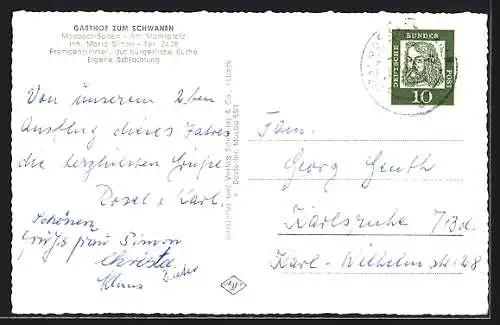 GASTHOF ZUM SCHWANEN
Mosbach/Baden - Am Marktplatz
Inh. Maria Simon - Tel. 2428
Fremdenzimmer, gut bürgerliche Küche
Eigene Schlachtung
Von unserem 2ten
Ausflug dieses Jahres
die herzlichsten Grüße
Rosel u. Karl.
Schönen
Gruß Frau Simon
Christa
Klaus
Hersteller und Verlag Schöning & Co., Lübeck
DEUTSCHE BUNDES POST
10
Fam.
Georg
Karlsruhe /Bd.
Karl-Wilhelm str. 28